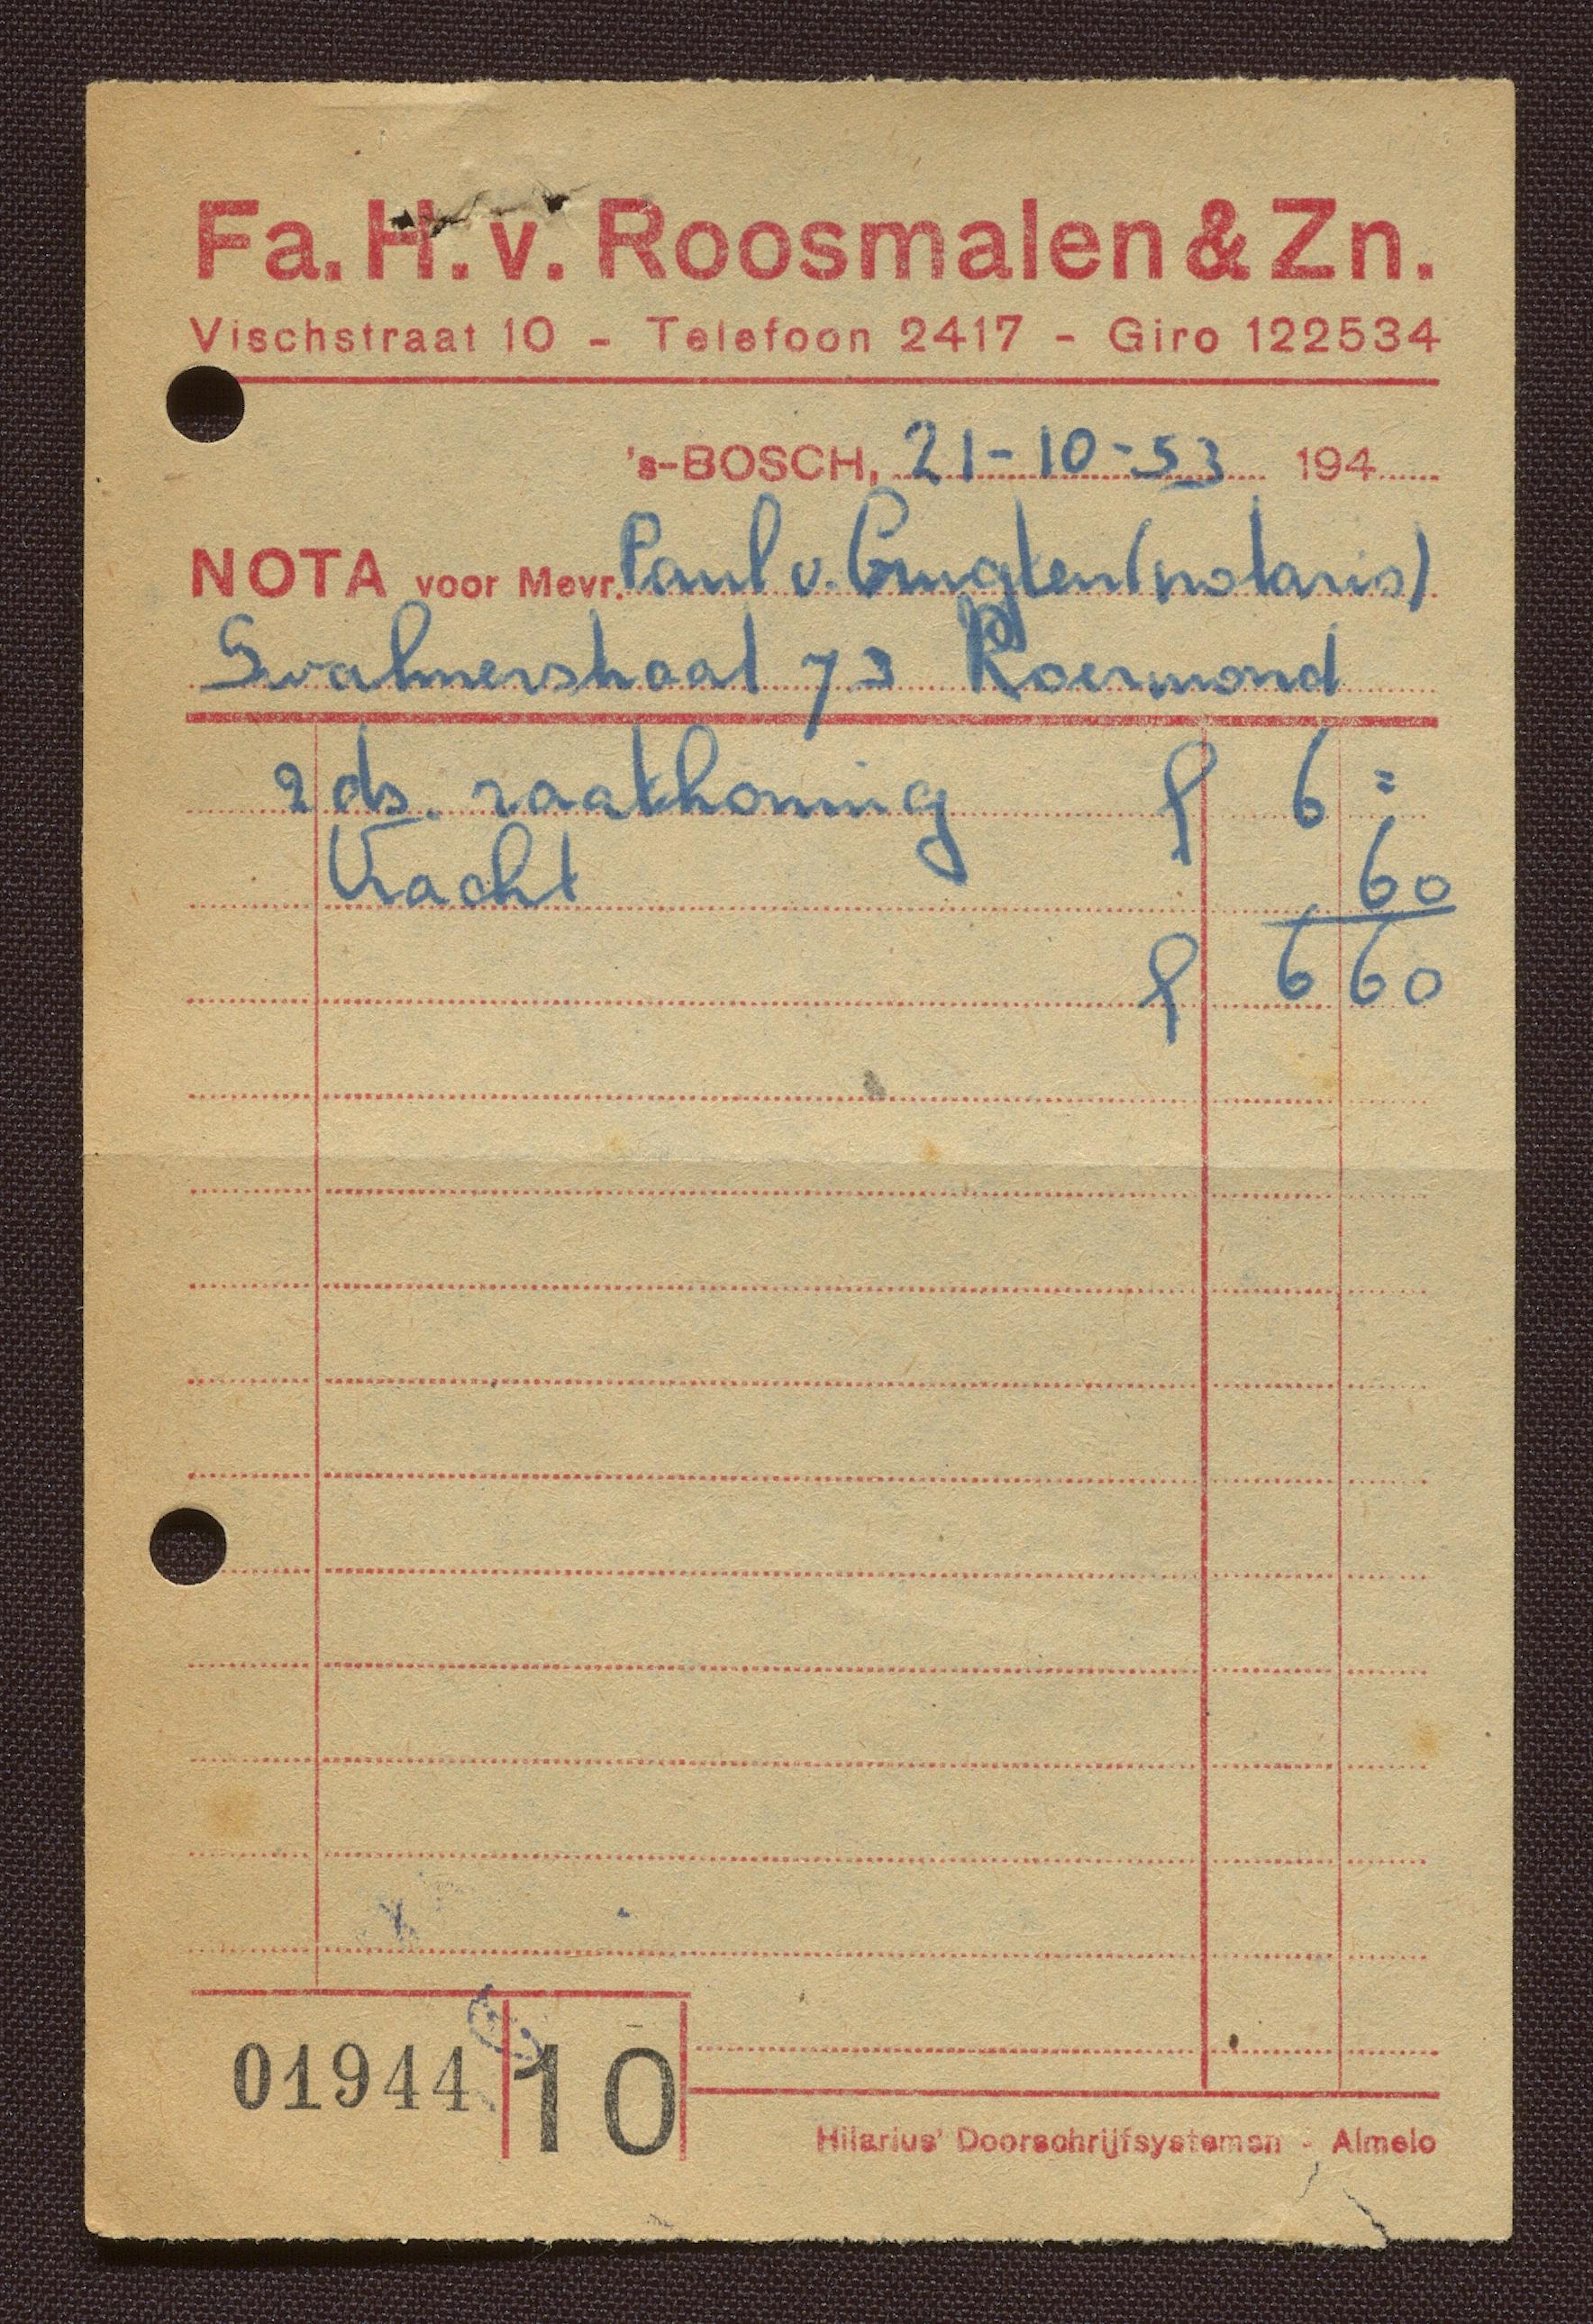 Fa. H. v. Roosmalen & Zn.
Vischstraat 10 - Telefoon 2417 - Giro 122534
's-BOSCH, 21-10-53 194
NOTA voor Mevr. Paul v. (notaris)
Swalmerstraat 73 Roermond
2 ds. raathoning f 6 =
Vracht 60
f 6 60
01944 10
Hilarius' Doorschrijfsystemen - Almelo